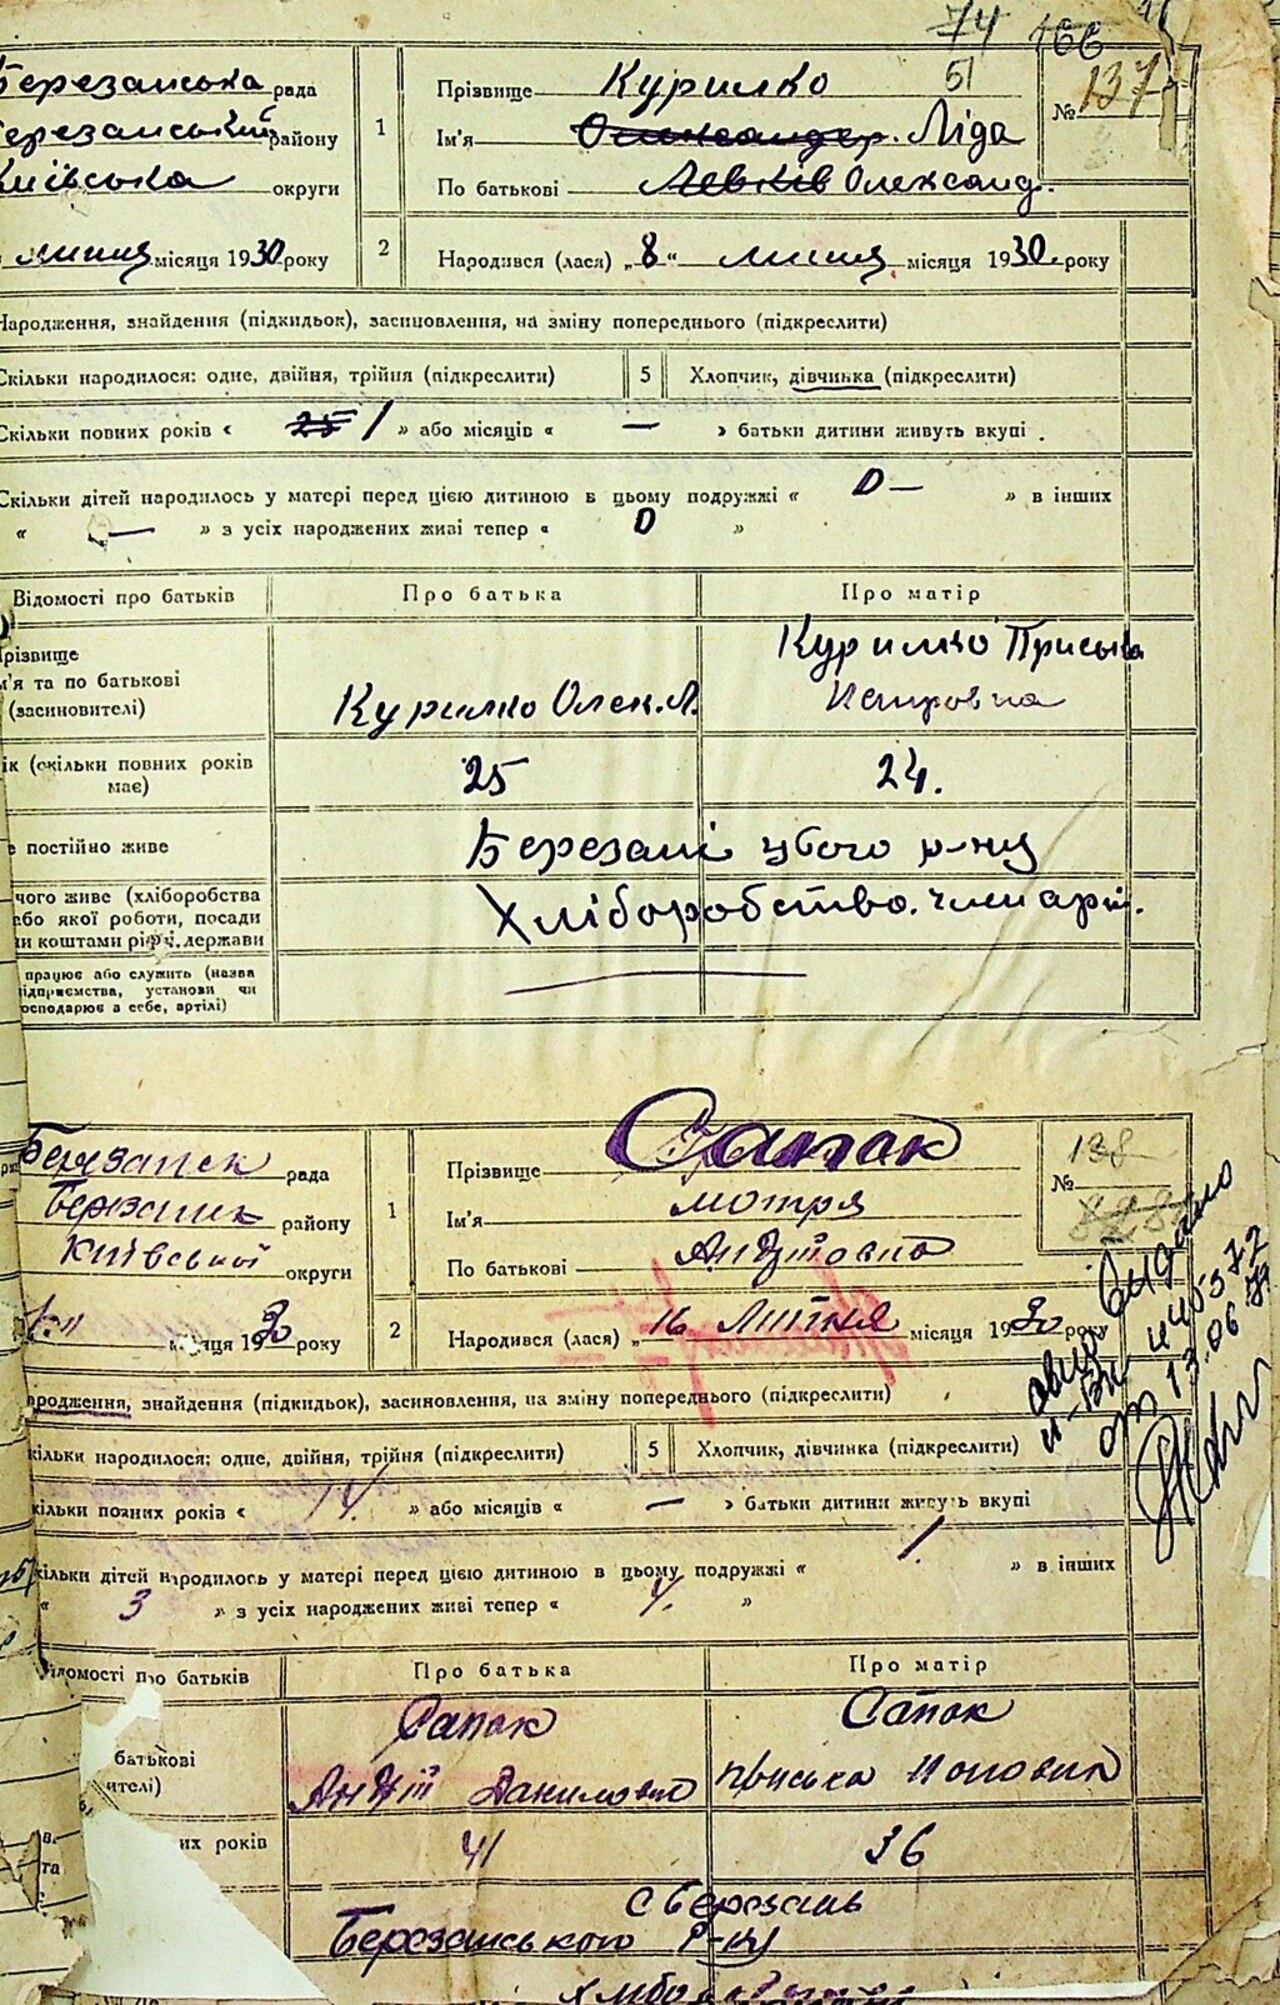 74 166
Березанська рада
Березанський району
Київська округи
1
Прізвище Курилко 51
Ім'я Олександер. Ліда
По батькові Левків Олександ.
№ 137
липня місяця 1930 року
2
Народився (лася) „8“ липня місяця 1930 року
Народження, знайдення (підкидьок), засиновлення, на зміну попереднього (підкреслити)
Скільки народилося: одне, двійня, трійня (підкреслити)
5
Хлопчик, дівчинка (підкреслити)
Скільки повних років « 25 1 » або місяців « — » батьки дитини живуть вкупі .
Скільки дітей народилось у матері перед цією дитиною в цьому подружжі « 0 — » в інших
« — » з усіх народжених живі тепер « 0 »
Відомості про батьків
Про батька
Про матір
Прізвище
м'я та по батькові
(засиновителі)
Курилко Олек. Л.
Курилко Приська
Петровна
ік (скільки повних років
має)
25
24.
е постійно живе
Березані цього р-ну
чого живе (хліборобства
або якої роботи, посади
чи коштами рідні, держави
Хліборобство.
працює або служить (назва
підприємства, установи чи
господарює в себе, артілі)
Березанск рада
району
Київської округи
1
Прізвище Сапак
Ім'я Мотря
По батькові
№ 138
місяця 1930 року
2
Народився (лася) „16 Липня місяця 1930 року
народження, знайдення (підкидьок), засиновлення, на зміну попереднього (підкреслити)
Скільки народилося: одне, двійня, трійня (підкреслити)
5
Хлопчик, дівчинка (підкреслити)
Скільки повних років « 14 » або місяців « — » батьки дитини живуть вкупі
Скільки дітей народилось у матері перед цією дитиною в цьому подружжі « 1. » в інших
« 3 » з усіх народжених живі тепер « 4. »
Відомості про батьків
Про батька
Про матір
батькові
ителі)
Сапак
Данилович
Сапак
Приська
их років
41
36
с Березань
Березанського р-ну
видано
от 13.06